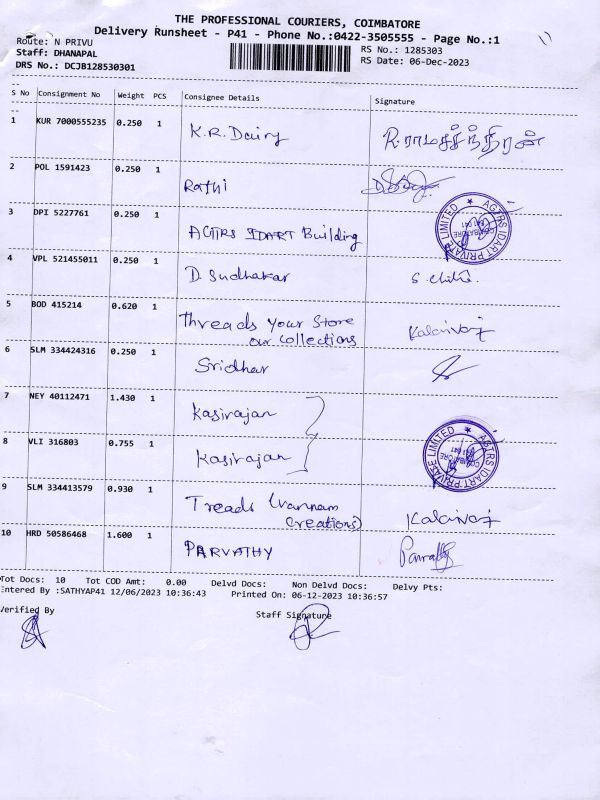 THE PROFESSIONAL COURIERS, COIMBATORE
Delivery Runsheet - P41 - Phone No.:0422-3505555 - Page No.:1
Route: N PRIVU
RS No.: 1285303
Staff: DHANAPAL
RS Date: 06-Dec-2023
DRS No.: DCJB128530301
S No Consignment No Weight PCS Consignee Details Signature
1 KUR 7000555235 0.250 1 K.R. Dairy R. ராமச்சந்திரன்
2 POL 1591423 0.250 1 Rathi
3 DPI 5227761 0.250 1 AGTRS IDART Building
AGTRS IDART PRIVATE LIMITED ★ COIMBATORE 641 041
4 VPL 521455011 0.250 1 D. Sudhakar
5 BOD 415214 0.620 1 Threads Your Store
our collections
6 SLM 334424316 0.250 1 Sridhar
7 NEY 40112471 1.430 1 Kasirajan
8 VLI 316803 0.755 1 Kasirajan
AGTRS IDART PRIVATE LIMITED ★ COIMBATORE 641 041
9 SLM 334413579 0.930 1 Treads (Vannam
Creations)
10 HRD 50586468 1.600 1 PARVATHY
Tot Docs: 10 Tot COD Amt: 0.00 Delvd Docs: Non Delvd Docs: Delvy Pts:
Entered By :SATHYAP41 12/06/2023 10:36:43 Printed On: 06-12-2023 10:36:57
Verified By Staff Signature